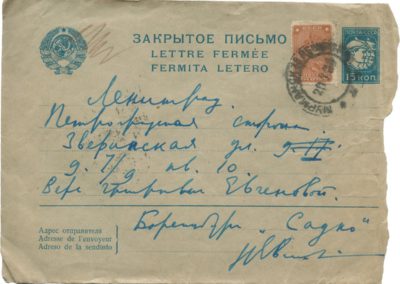 ЗАКРЫТОЕ ПИСЬМО
LETTRE FERMÉE
FERMITA LETERO
ПОЧТА СССР
15 КОП.
Ленинград.
Петроградская сторона
Зверинская ул.
д. 7/9 кв. 10
Вере Евгеновой
"Садко"
Адрес отправителя
Adresse de l'envoyeur
Adreso de la sendinto